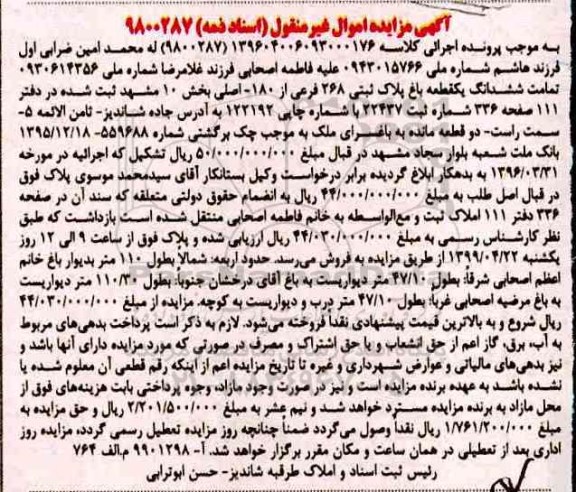 آگهی مزایده اموال غیرمنقول (اسناد ذمه) ۹۸۰۰۲۸۷
به موجب پرونده اجرائی کلاسه ۱۳۹۶۰۴۰۰۶۰۹۳۰۰۰۱۷۶ (۹۸۰۰۲۸۷) له محمد امین ضرابی اول
فرزند هاشم شماره ملی ۰۹۴۳۰۱۵۷۶۶ علیه فاطمه اصحابی فرزند غلامرضا شماره ملی ۰۹۳۰۶۱۴۳۵۶
تمامت ششدانگ یکقطعه باغ پلاک ثبتی ۲۶۸ فرعی از ۱۸۰- اصلی بخش ۱۰ مشهد ثبت شده در دفتر
۱۱۱ صفحه ۳۳۶ شماره ثبت ۲۲۴۳۷ با شماره چاپی ۱۲۲۱۹۲ به آدرس جاده شاندیز- ثامن الائمه ۵-
سمت راست- دو قطعه مانده به باغسرای ملک به موجب چک برگشتی شماره ۵۵۹۶۸۸- ۱۳۹۵/۱۲/۱۸
بانک ملت شعبه بلوار سجاد مشهد در قبال مبلغ ۵۰/۰۰۰/۰۰۰/۰۰۰ ریال تشکیل که اجرائیه در مورخه
۱۳۹۶/۰۳/۳۱ به بدهکار ابلاغ گردیده برابر درخواست وکیل بستانکار آقای سیدمحمد موسوی پلاک فوق
در قبال اصل طلب به مبلغ ۴۴/۰۰۰/۰۰۰/۰۰۰ ریال به انضمام حقوق دولتی متعلقه که سند آن در صفحه
۳۳۶ دفتر ۱۱۱ املاک ثبت و مع‌الواسطه به خانم فاطمه اصحابی منتقل شده است بازداشت که طبق
نظر کارشناس رسمی به مبلغ ۴۴/۰۳۰/۰۰۰/۰۰۰ ریال ارزیابی شده و پلاک فوق از ساعت ۹ الی ۱۲ روز
یکشنبه ۱۳۹۹/۰۴/۲۲ از طریق مزایده به فروش می‌رسد. حدود اربعه: شمالاً بطول ۱۱۰ متر بدیوار باغ خانم
اعظم اصحابی شرقاً: بطول ۴۷/۱۰ متر دیواریست به باغ آقای درخشان جنوبا: بطول ۱۱۰/۳۰ متر دیواریست
به باغ مرضیه اصحابی غربا: بطول ۴۷/۱۰ متر درب و دیواریست به کوچه. مزایده از مبلغ ۴۴/۰۳۰/۰۰۰/۰۰۰
ریال شروع و به بالاترین قیمت پیشنهادی نقداً فروخته می‌شود. لازم به ذکر است پرداخت بدهی‌های مربوط
به آب، برق، گاز اعم از حق انشعاب و یا حق اشتراک و مصرف در صورتی که مورد مزایده دارای آنها باشد و
نیز بدهی‌های مالیاتی و عوارض شهرداری و غیره تا تاریخ مزایده اعم از اینکه رقم قطعی آن معلوم شده یا
نشده باشد به عهده برنده مزایده است و نیز در صورت وجود مازاد، وجوه پرداختی بابت هزینه‌های فوق از
محل مازاد به برنده مزایده مسترد خواهد شد و نیم عشر به مبلغ ۲/۲۰۱/۵۰۰/۰۰۰ ریال و حق مزایده به
مبلغ ۱/۷۶۱/۲۰۰/۰۰۰ ریال نقداً وصول می‌گردد ضمناً چنانچه روز مزایده تعطیل رسمی گردد، مزایده روز
اداری بعد از تعطیلی در همان ساعت و مکان مقرر برگزار خواهد شد. آ- ۹۹۰۱۲۹۸ م.الف ۷۶۴
رئیس ثبت اسناد و املاک طرقبه شاندیز- حسن ابوترابی